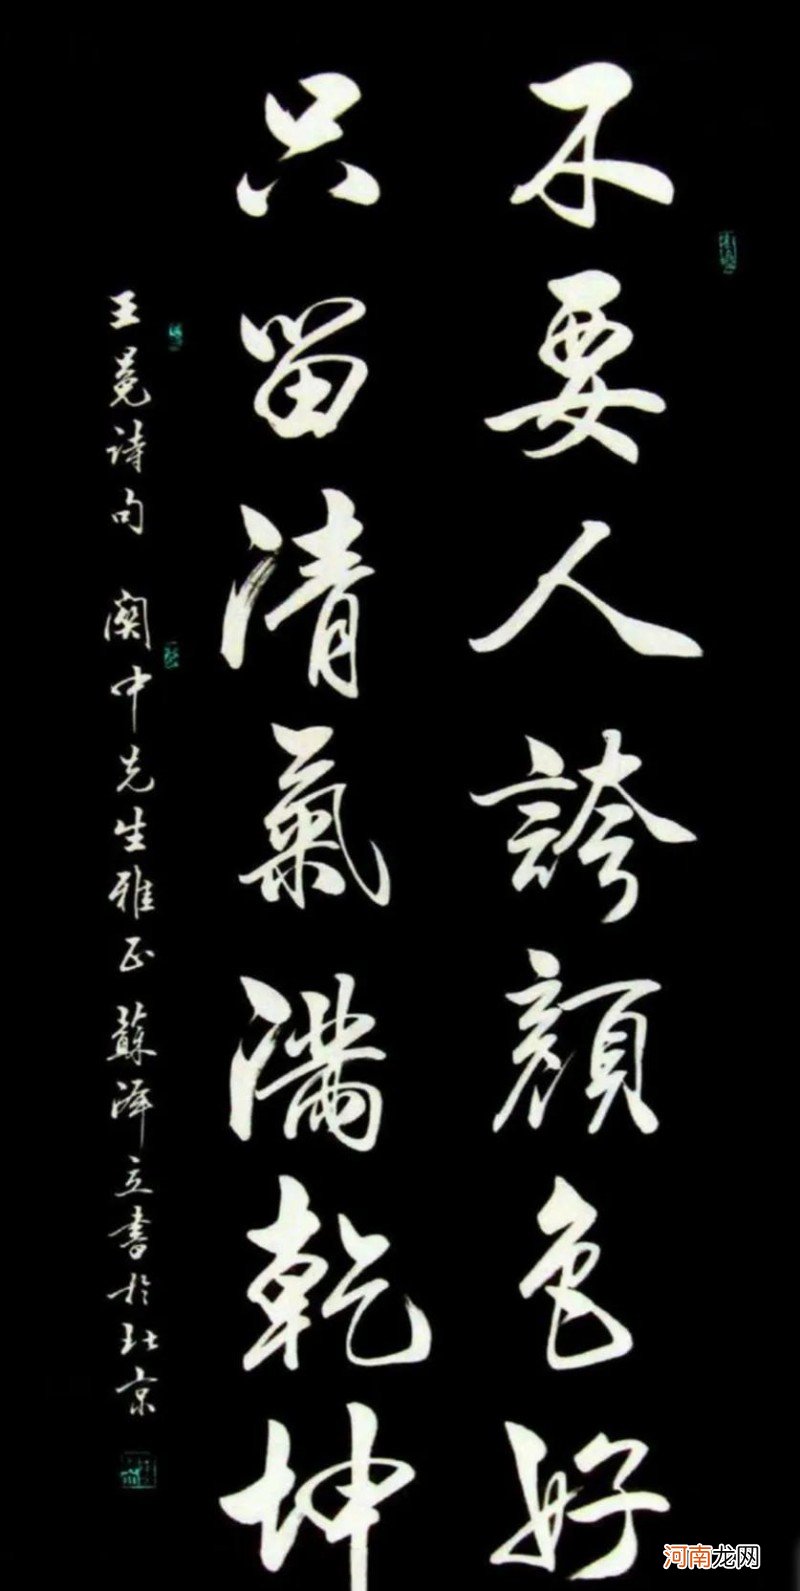 不要人誇顏色好
只留清氣滿乾坤
王冕诗句 闌中先生雅正 蘇澤立書於北京
河南龙网